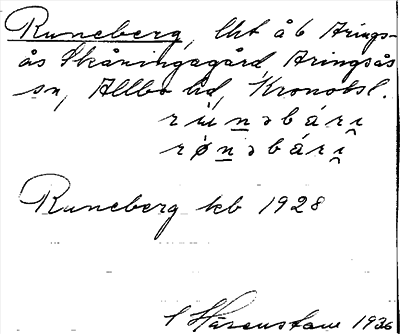 Runeberg, lht å 6 Arings-
ås Skåningagård, Aringsås
sn, Allbo hd, Kronobsl.
rúnəbárɪ
rǿnəbárɪ
Runeberg kb 1928
Härenstam 1936